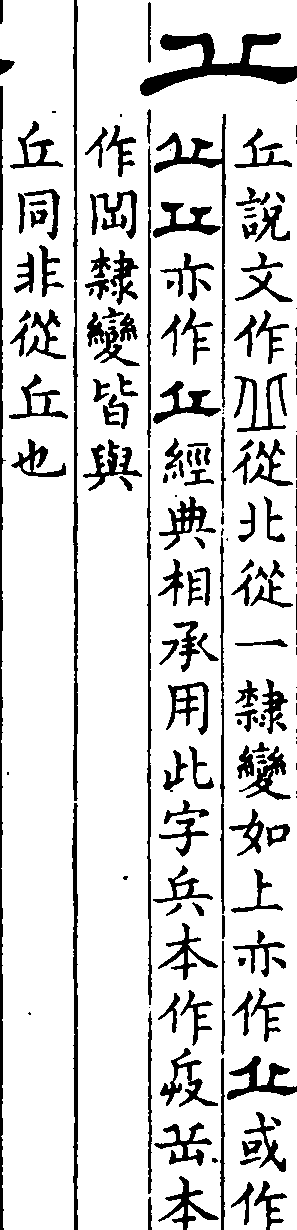 丠
丘說文作丠從北從一隸變如上亦作丠或作
亦作經典相承用此字兵本作岳本
作隸變皆與
丘同非從丘也